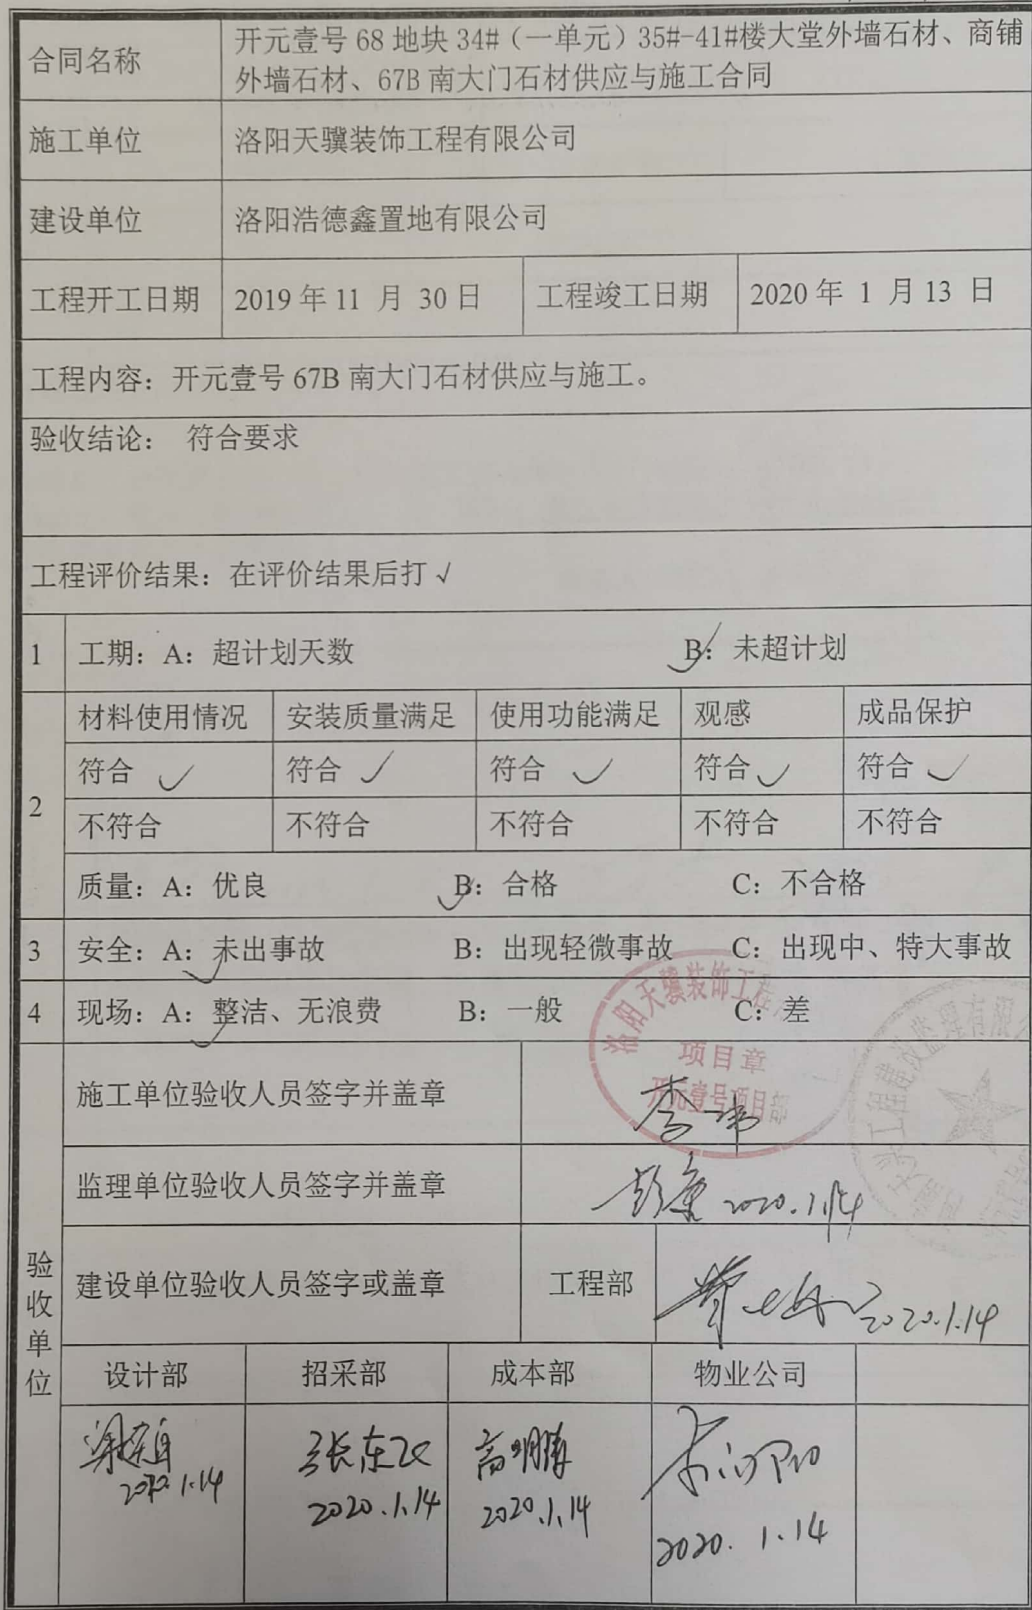 合同名称
开元壹号 68 地块 34#（一单元）35#-41#楼大堂外墙石材、商铺
外墙石材、67B 南大门石材供应与施工合同
施工单位
洛阳天骥装饰工程有限公司
建设单位
洛阳浩德鑫置地有限公司
工程开工日期
2019 年 11 月 30 日
工程竣工日期
2020 年 1 月 13 日
工程内容：开元壹号 67B 南大门石材供应与施工。
验收结论： 符合要求
工程评价结果：在评价结果后打√
1
工期：A：超计划天数 B：未超计划
2
材料使用情况 安装质量满足 使用功能满足 观感 成品保护
符合 ✓ 符合 ✓ 符合 ✓ 符合 ✓ 符合 ✓
不符合 不符合 不符合 不符合 不符合
质量：A：优良 B：合格 C：不合格
3
安全：A：未出事故 B：出现轻微事故 C：出现中、特大事故
4
现场：A：整洁、无浪费 B：一般 C：差
洛阳天骥装饰工程
项目章
开元壹号项目部
工程建设监理有限
验收单位
施工单位验收人员签字并盖章
李
监理单位验收人员签字并盖章
2020.1.14
建设单位验收人员签字或盖章
工程部
2020.1.14
设计部 招采部 成本部 物业公司
张东飞 高明鹏
2020.1.14 2020.1.14 2020.1.14 2020.1.14